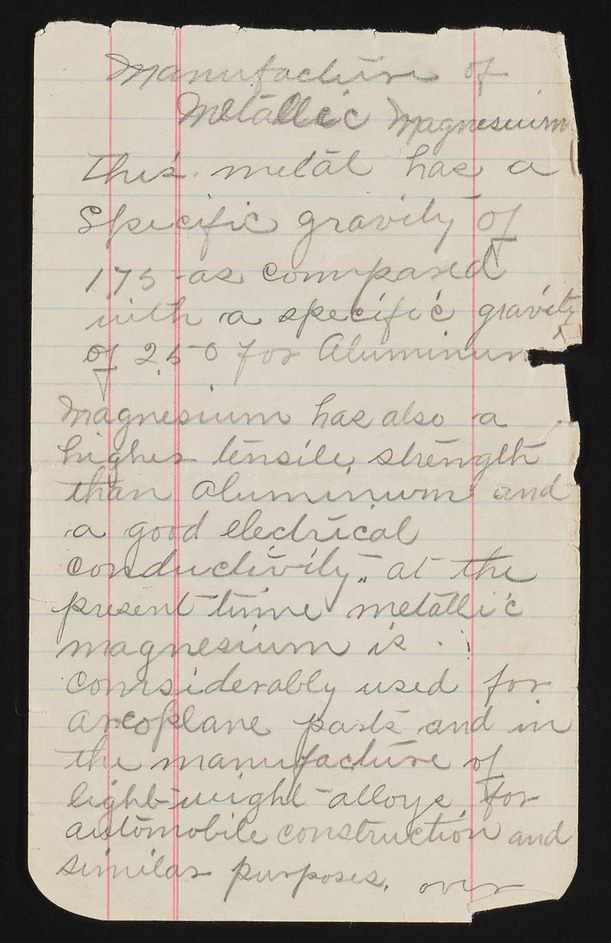 Manufacture of
Metallic Magnesium
This metal has a
Specific gravity of
1.75 as compared
with a specific gravity
of 2.50 for Aluminum
Magnesium has also a
higher tensile strength
than aluminium and
a good electrical
conductivity, at the
present time metallic
magnesium is
considerably used for
areoplane parts and in
the manufacture of
light-weight alloys for
automobile construction and
similar purposes. over